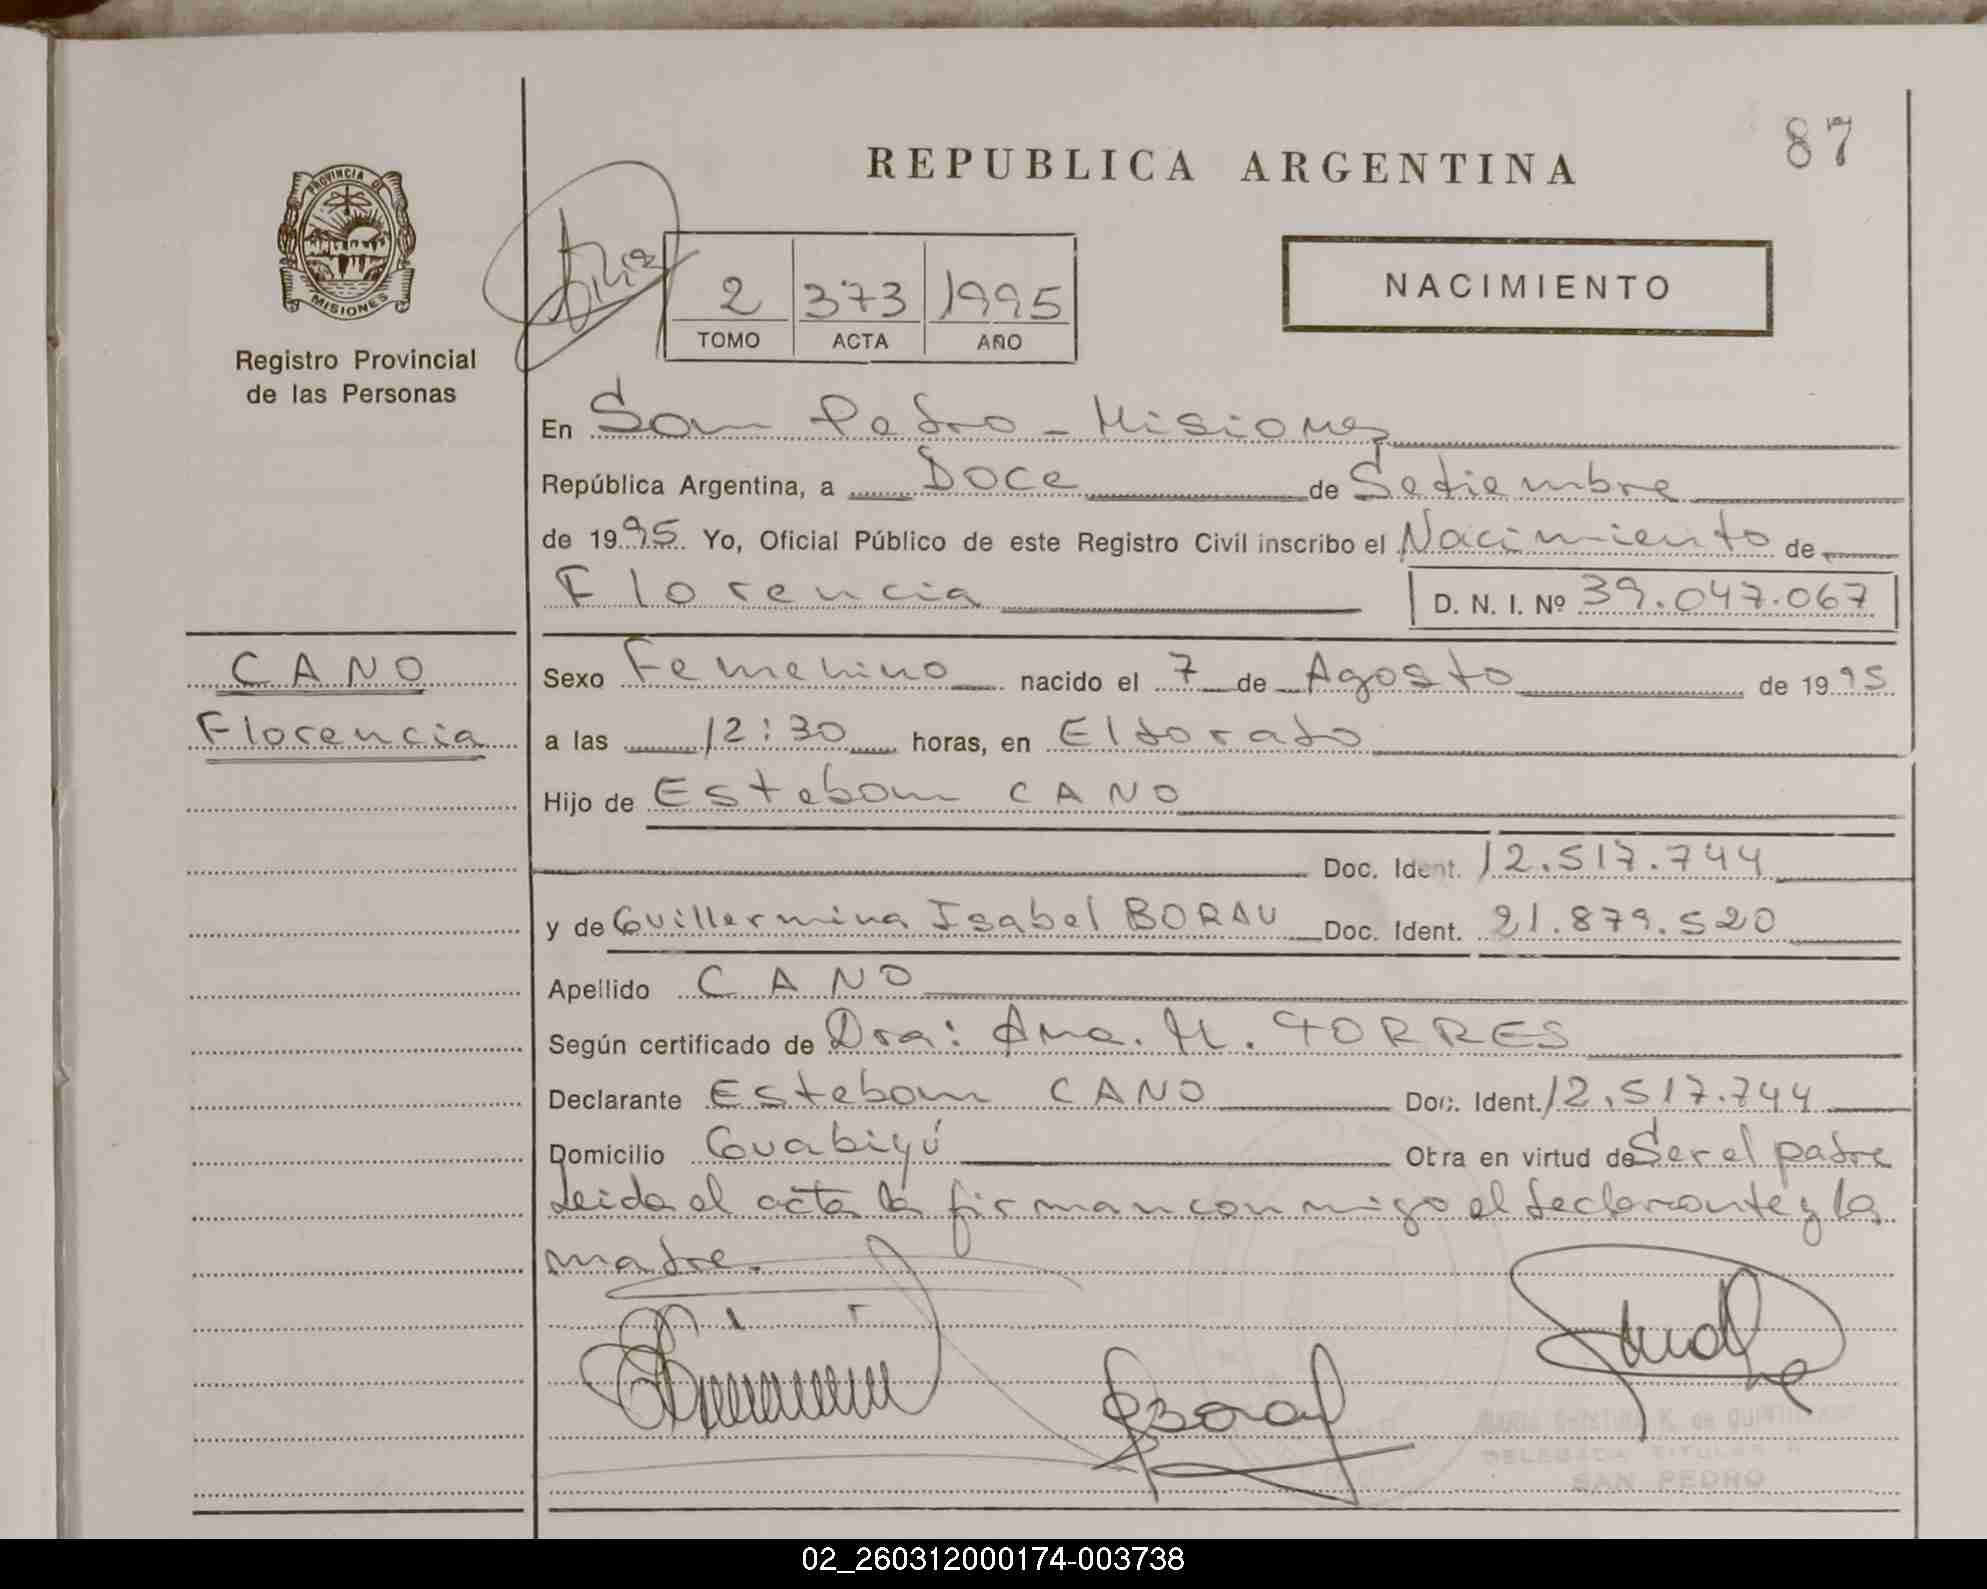 87
REPUBLICA ARGENTINA
PROVINCIA D
MISIONES
Registro Provincial
de las Personas
2 373 1995
TOMO ACTA AÑO
NACIMIENTO
En San Pedro - Misiones
República Argentina, a Doce de Setiembre
de 1995 Yo, Oficial Público de este Registro Civil inscribo el Nacimiento de
Florencia D. N. I. Nº 39.047.067
CANO
Florencia
Sexo Femenino nacido el 7 de Agosto de 1995
a las 12:30 horas, en Eldorado
Hijo de Esteban CANO
Doc. Ident. 12.517.744
y de Guillermina Isabel BORAU Doc. Ident. 21.879.520
Apellido CANO
Según certificado de Dra: Ana. M. TORRES
Declarante Esteban CANO Doc. Ident. 12.517.744
Domicilio Guabiyú Obra en virtud de Ser el padre
Leida el acta la firman conmigo el declarante y la
madre.
DELEGADA TITULAR
SAN PEDRO
02_260312000174-003738